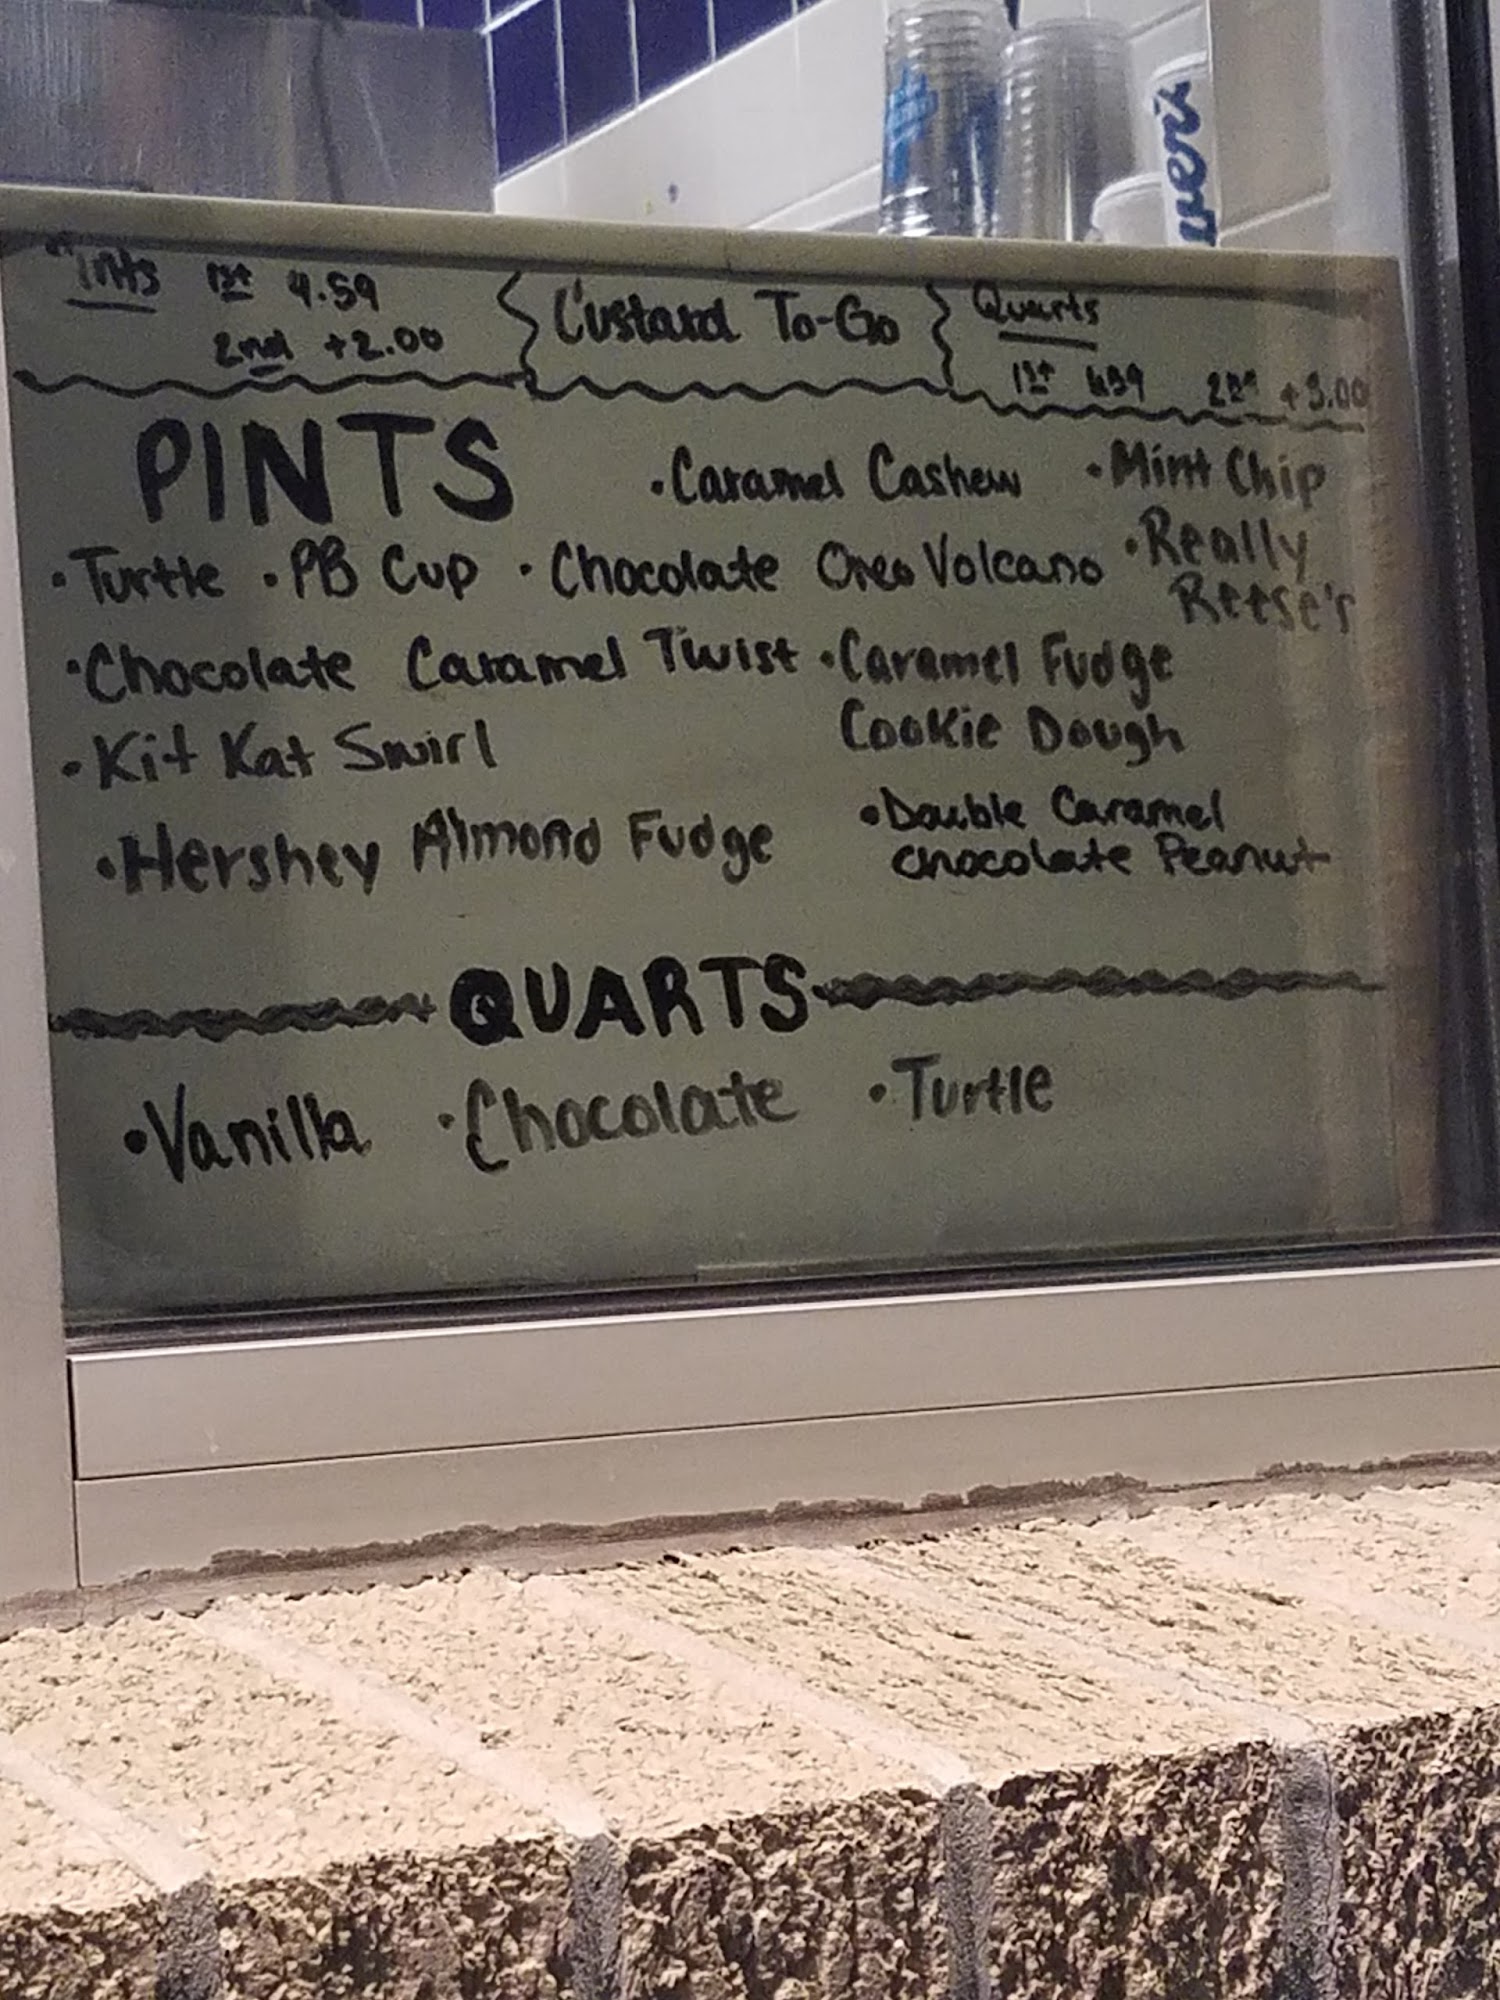 Pints 1st 4.59
2nd +2.00
Custard To-Go
Quarts
1st 6.99 2nd +3.00
PINTS
·Caramel Cashew ·Mint Chip
·Turtle ·PB Cup ·Chocolate Oreo Volcano ·Really
Reese's
·Chocolate Caramel Twist ·Caramel Fudge
Cookie Dough
·Kit Kat Swirl
·Hershey Almond Fudge
·Double Caramel
Chocolate Peanut
QUARTS
·Vanilla ·Chocolate ·Turtle